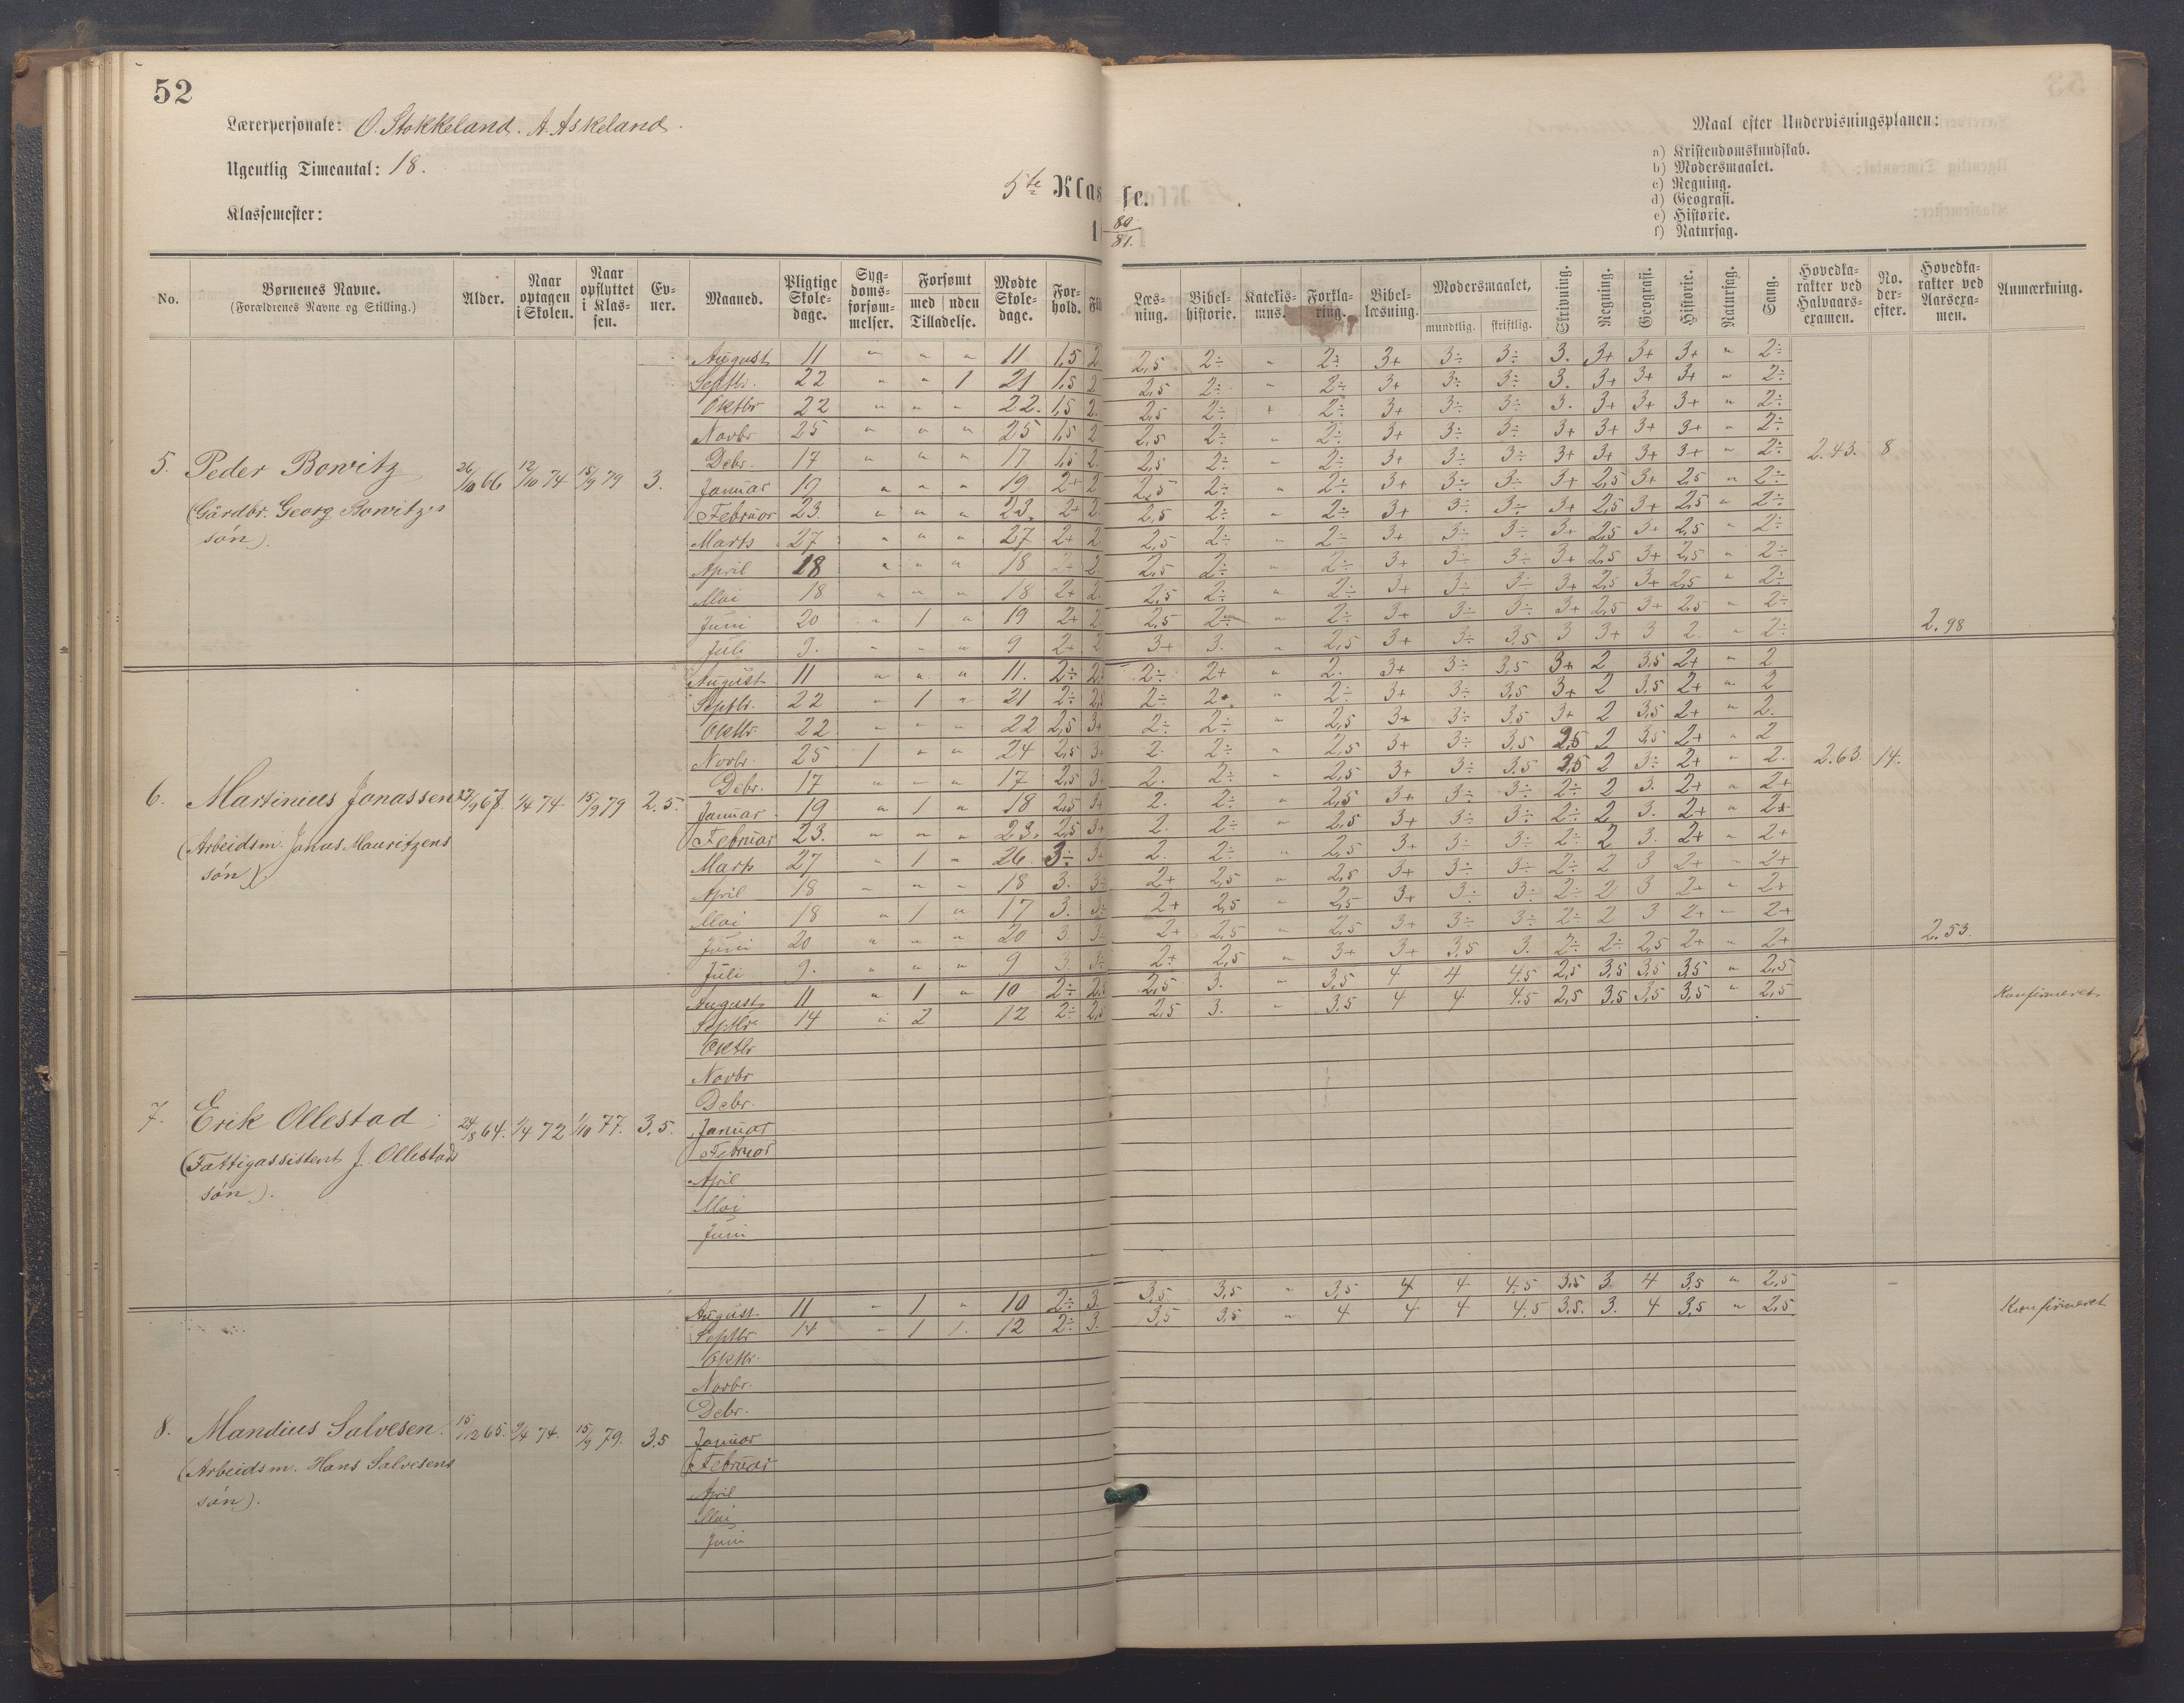 52
Lærerpersonale: O. Stokkeland. A. Askeland.
Ugentlig Timeantal: 18.
Klassemester:
5te Klasse.
80/81.
Maal efter Undervisningsplanen:
a) Kristendomskundskab.
b) Modersmaalet.
c) Regning.
d) Geografi.
e) Historie.
f) Naturfag.
No. | Børnenes Navne. (Forældrenes Navne og Stilling.) | Alder. | Naar optagen i Skolen. | Naar opflyttet i Klassen. | Evner. | Maaned. | Pligtige Skoledage. | Sygdomsforsømmelser. | Forsømt med uden Tilladelse. | Mødte Skoledage. | Forhold. | Fli | Læsning. | Bibelhistorie. | Katekismus. | Forklaring. | Bibellæsning. | Modersmaalet, mundtlig. skriftlig. | Skrivning. | Regning. | Geografi. | Historie. | Naturfag. | Sang. | Hovedkarakter ved Halvaarsexamen. | No. derefter. | Hovedkarakter ved Aarsexamen. | Anmærkning.
5. Peder Bowitz 26/10 66 12/10 74 15/9 79 3.
(Gårdbr. Georg Bowitz's
sön).
August 11 " " " 11 1,5 2 2,5 2÷ " 2÷ 3+ 3÷ 3÷ 3. 3+ 3+ 3+ " 2÷
Septbr. 22 " " 1 21 1,5 2 2,5 2÷ " 2÷ 3+ 3÷ 3÷ 3. 3+ 3+ 3+ " 2÷
Oktbr 22 " " " 22. 1,5 2. 2,5 2÷ + 2÷ 3+ 3÷ 3÷ 3. 3+ 3+ 3+ " 2÷
Novbr 25 " " " 25 1,5 2 2,5 2÷ " 2÷ 3+ 3÷ 3÷ 3+ 3+ 3+ 3+ " 2÷
Debr. 17 " " " 17 1,5 2. 2,5 2÷ " 2÷ 3+ 3÷ 3÷ 3+ 3+ 3+ 3+ " 2÷ 2.43. 8
Januar 19 " " " 19 2+ 2 2,5 2÷ " 2÷ 3+ 3÷ 3÷ 3+ 2,5 3+ 2,5 " 2÷
Februar 23. " " " 23. 2+ 2. 2,5 2÷ " 2÷ 3+ 3÷ 3÷ 3+ 2,5 3+ 2,5 " 2÷
Marts 27 " " " 27 2+ 2 2,5 2÷ " 2÷ 3+ 3÷ 3÷ 3+ 2,5 3+ 2,5 " 2÷
April 18 " " " 18 2+ 2. 2,5 2÷ " 2÷ 3+ 3÷ 3÷ 3+ 2,5 3+ 2,5 " 2÷
Mai 18 " " " 18 2+ 2. 2,5 2÷ " 2÷ 3+ 3÷ 3÷ 3+ 2,5 3+ 2,5 " 2÷
Juni 20 " 1 " 19 2+ 2 2,5 2÷ " 2÷ 3+ 3÷ 3÷ 3+ 2,5 3+ 2,5 " 2÷
Juli 9. " " " 9 2+ 2 3+ 3. " 2,5 3+ 3÷ 3,5 3 3+ 3 2. " 2÷ 2.98
6. Martinius Jonassen 27/9 67 1/4 74 15/9 79 2.5.
(Arbeidsm. Jonas Mauritzens
sön).
August 11 " " " 11. 2÷ 2÷ 2+ " 2. 3+ 3÷ 3,5 3+ 2 3,5 2+ " 2
Septbr. 22 " 1 " 21 2÷ 2,5 2÷ 2. " 2÷ 3+ 3÷ 3,5 3+ 2 3,5 2+ " 2
Oktbr. 22 " " " 22 2,5 3+ 2÷ 2÷ " 2,5 3+ 3÷ 3,5 3+ 2 3,5 2+ " 2.
Novbr. 25 1 " " 24 2,5 3+ 2. 2÷ " 2,5 3+ 3÷ 3,5 2,5 2 3,5 2+ " 2
Debr. 17 " " " 17 2,5 3+ 2. 2÷ " 2,5 3+ 3÷ 3,5 2,5 2 3÷ 2+ " 2. 2.63 14.
Januar 19 " 1 " 18 2,5 3+ 2. 2÷ " 2,5 3+ 3÷ 3÷ 2÷ 2 3. 2+ " 2+
Februar 23. " " " 23. 2,5 3+ 2. 2÷ " 2,5 3+ 3÷ 3÷ 2÷ 2 3. 2+ " 2+
Marts 27 " 1 " 26 3÷ 3+ 2. 2÷ " 2,5 3+ 3÷ 3÷ 2÷ 2 3. 2+ " 2+
April 18 " " " 18 3. 3÷ 2+ 2,5 " 2,5 3+ 3÷ 3÷ 2÷ 2 3 2+ " 2+
Mai 18 " 1 " 17 3. 3÷ 2+ 2,5 " 2,5 3+ 3÷ 3÷ 2÷ 2 3 2+ " 2+
Juni 20 " " " 20 3 3÷ 2+ 2,5 " 2,5 3+ 3÷ 3÷ 2÷ 2 3 2+ " 2+
Juli 9. " " " 9 3. 3÷ 2+ 2,5 " 3+ 3+ 3,5 3. 2÷ 2÷ 2,5 2+ " 2+ 2.53.
7. Erik Ollestad 24/8 64. 1/4 72 1/10 77. 3,5.
(Fattigassistent J. Ollestads
sön).
August 11 " 1 " 10 2÷ 2,5 2,5 3. " 3,5 4 4 4,5 2,5 3,5 3,5 3,5 " 2,5
Septbr 14 " 2 12 2÷ 2,5 2,5 3. " 3,5 4 4 4,5 2,5 3,5 3,5 3,5 " 2,5 Konfirmeret
Oktbr
Novbr
Debr.
Januar
Februar
April
Mai
Juni
8. Mandius Salvesen. 15/12 65. 74. 15/9 79. 3.5
(Arbeidsm. Hans Salvesens
sön).
August 11 " 1 " 10 2÷ 3. 3,5 3,5 " 3,5 4 4 4,5 3,5 3. 4 3,5 " 2,5
Septbr 14 " 1 1. 12 2÷ 3. 3,5 3,5 " 4 4 4 4,5 3,5. 3. 4 3,5 " 2,5 Konfirmeret
Oktbr.
Novbr.
Debr.
Januar
Februar
April
Mai
Juni